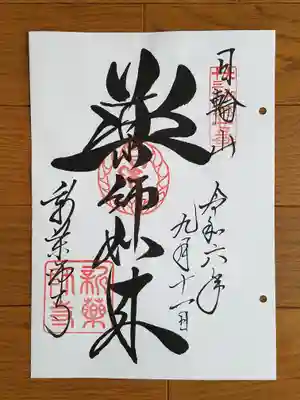 日輪山
令和六年
九月十一日
薬師如来
新薬師寺
新藥
師寺